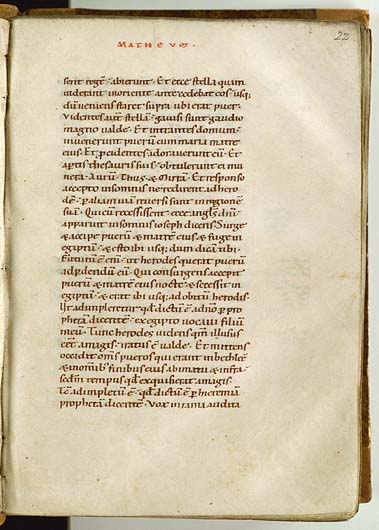 22
MATHEVM·
serit regē· abierunt· Et ecce stella quam
uiderant in oriente· antecedebat eos· usq;
dū ueniens staret supra ubi erat puer·
Videntes aūt stellā· gauisi sunt gaudio
magno ualde· Et intrantes domum·
inuenerunt puerū cum maria matre
eius· Et procidentes adorauerunt eū· Et
aptis thesauris suis· obtulerunt ei mu
nera· Aurū· Thus· & Mirrā· Et responso
accepto in somnis ne redirent ad hero
dē· p aliam uiā reuersi sunt in regionē
suā· Qui cū recessissent· ecce angls dn̄i
apparuit in somnis ioseph dicens· Surge
& accipe puerū & matrē eius· & fuge in
egiptū· & esto ibi usq; dum dicā tibi·
Futurū ē enī· ut herodes querat puerū
ad pdendū eū· Qui consurgens accepit
puerū & matrē eius nocte· & secessit in
egiptū· & erat ibi usq; ad obitū herodis·
Ut adimpleretur qd dictū ē a dn̄o p pro
phetā dicentē· ex egipto uocaui filiū
meū· Tunc herodes uidens qm̄ illusus
eēt a magis· iratus ē ualde· Et mittens
occidit om̄s pueros qui erant in bethleē
& in omib; finibus eius a bimatu & infra·
scdm tempus qd exquisierat a magis·
Tc̄ adimpletū ē· qd dictū ē p hieremiā
prophetā dicentē· Vox in rama audita